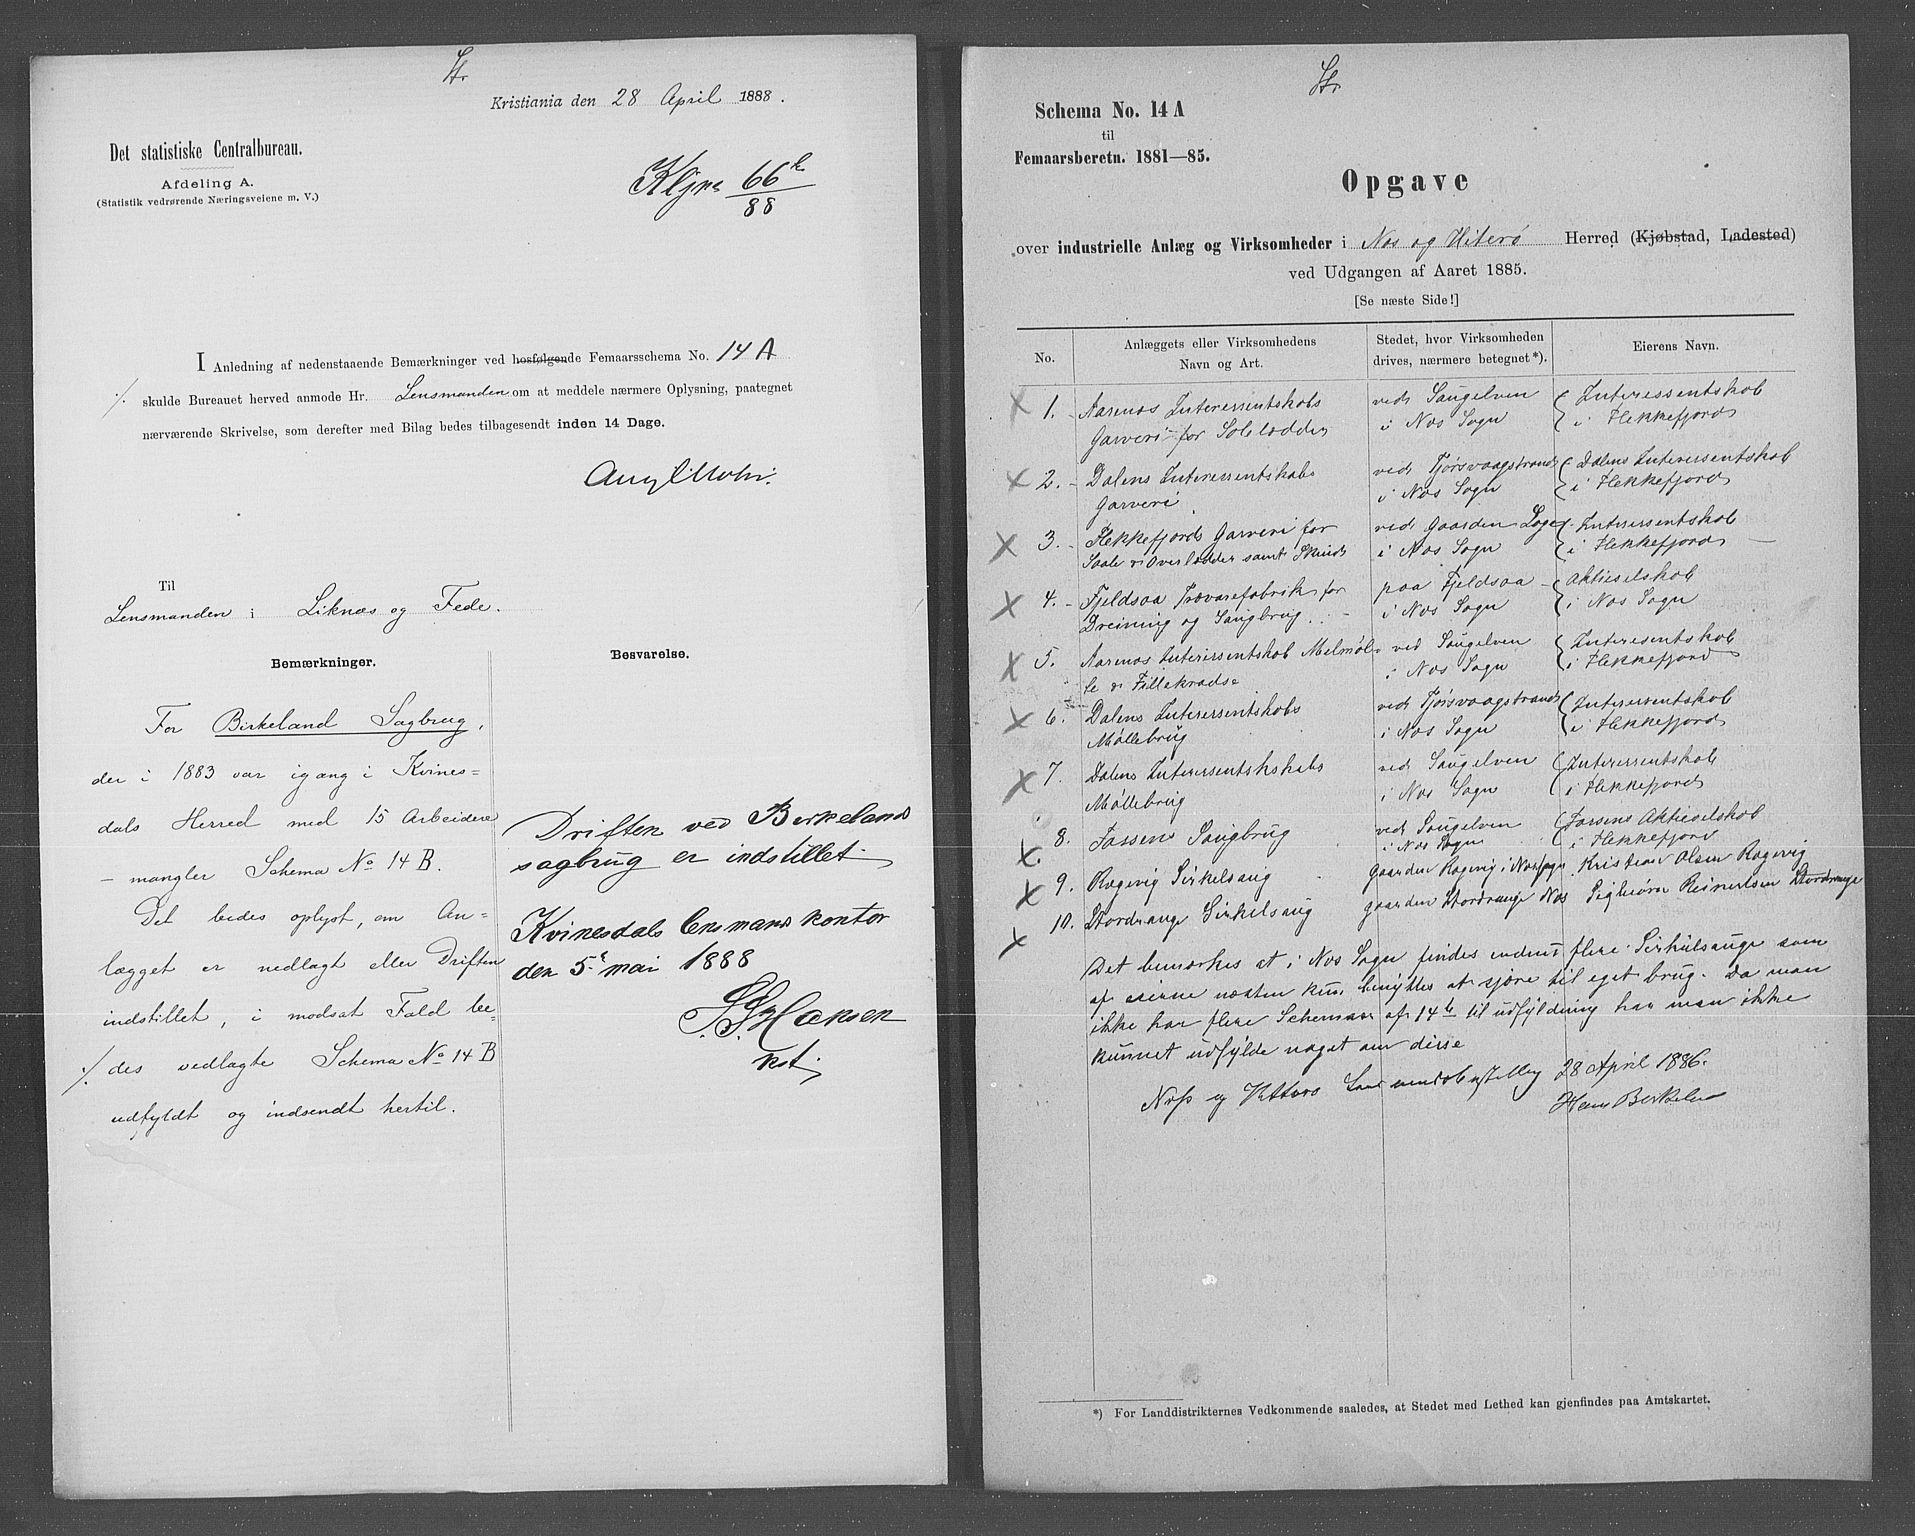 Kristiania den 28 April 1888.
Det statistiske Centralbureau.
Afdeling A.
(Statistik vedrørende Næringsveiene m. V.)
66
88
I Anledning af nedenstaaende Bemærkninger ved hosfølgende Femaarsschema No. 14 A
skulde Bureauet herved anmode Hr. Lensmanden om at meddele nærmere Oplysning, paategnet
nærværende Skrivelse, som derefter med Bilag bedes tilbagesendt inden 14 Dage.
Til
Lensmanden i Liknæs og Fede.
Bemærkninger.
For Birkeland Sagbrug,
der i 1883 var igang i Kvines=
dals Herred med 15 Arbeidere
– mangler Schema No 14 B.
Det bedes oplyst, om An=
lægget er nedlagt eller Driften
indstillet, i modsat Fald be=
des vedlagte Schema No 14 B
udfyldt og indsendt hertil.
Besvarelse.
Driften ved Birkelands
sagbrug er indstillet
Kvinesdals lensmandskontor
den 5te mai 1888
Hansen
kst.
Schema No. 14 A
til
Femaarsberetn. 1881—85.
Opgave
over industrielle Anlæg og Virksomheder i Nes og Hiterø Herred (Kjøbstad, Ladested)
ved Udgangen af Aaret 1885.
[Se næste Side!]
No. Anlæggets eller Virksomhedens Navn og Art. Stedet, hvor Virksomheden drives, nærmere betegnet*). Eierens Navn.
1. Aarenes Interessentskabs ved Saugelven Interessentskab
Garveri for Solelædder i Nes Sogn i Flekkefjord
2. Dalens Interessentskabs ved Tjørsvaagstrand Dalens Interessentskab
Garveri i Nes Sogn i Flekkefjord
3. Flekkefjords Garveri for ved Gaarden Loge Interessentskab
Saale & Overlædder samt Skind i Nes Sogn i Flekkefjord
4. Fjeldsaa Trævarefabrik for paa Fjeldsaa Aktieselskab
Dreining og Saugbrug i Nes Sogn i Nes Sogn
5. Aarenes Interissentskab Melmøl= ved Saugelven Interesentskab
le & Fillekradse i Nes Sogn i Flekkefjord
6. Dalens Interessentskabs ved Tjørsvaagstrand Interessentskab
Møllebrug i Nes Sogn i Flekkefjord
7. Dalens Interessentskskabs ved Saugelven Interessentskab
Møllebrug i Nes Sogn i Flekkefjord
8. Fossens Saugbrug ved Saugelven Fossens Aktieselskab
i Nes Sogn i Flekkefjord
9. Ragevig Sirkelsaug gaarden Ragevig i Nes sogn Kristian Olsen Ragevig
10. Stordrange Sirkelsaug gaarden Stordrange Nes Sigbiørn Reinertsen Stordrange
Det bemærkes at i Nes Sogn findes endnu flere Sirkulsauge som
af eierne næsten kun benyttes at sjøre til eget brug. Da man
ikke har flere Schemaer af 14 b til udfyldning har man ikke
kunnet udfylde noget om disse
Nes og Hitterø Lensmandsbestilling 28 April 1886.
Hans Birkeland
*) For Landdistrikternes Vedkommende saaledes, at Stedet med Lethed kan gjenfindes paa Amtskartet.